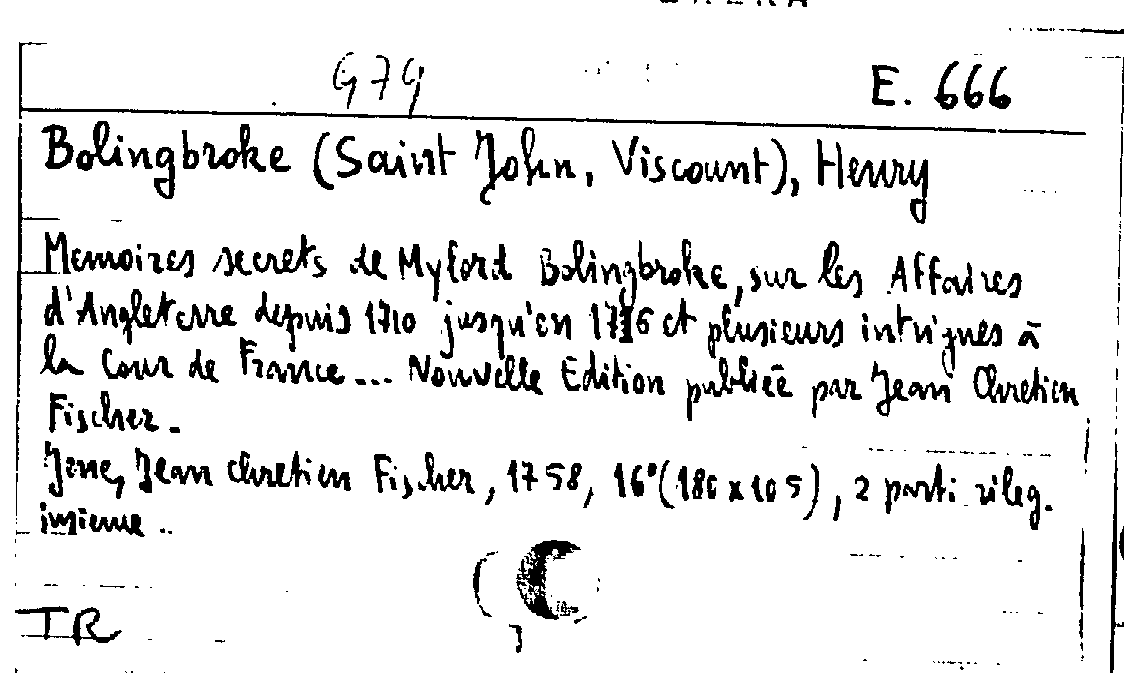 979
E. 666
Bolingbroke (Saint John, Viscount), Henry
Memoires secrets de Mylord Bolingbroke, sur les Affaires
d'Angleterre depuis 1710 jusqu'en 1716 et plusieurs intrigues à
la Cour de France... Nouvelle Edition publiée par Jean Chretien
Fischer.
Jene, Jean Chretien Fischer, 1758, 16°(180 x 105), 2 parti rileg.
insieme..
TR